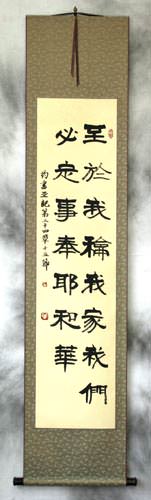 至於我和我家我們
必定事奉耶和華
約書亞記第二十四章十五節